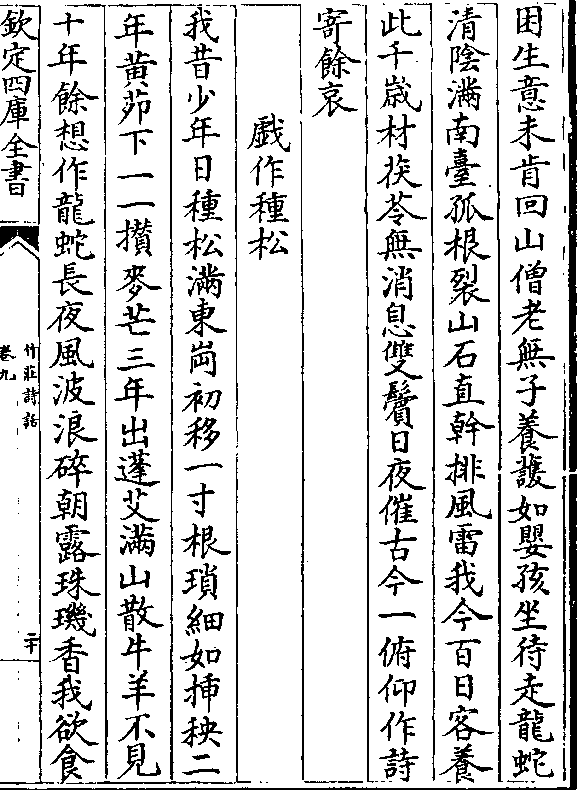 困生意未肯回山僧老無子養護如嬰孩坐待走龍蛇
清陰滿南臺孤根裂山石直幹排風雷我今百日客養
此千歲材茯苓無消息雙鬢日夜催古今一俯仰作詩
寄餘哀
戲作種松
我昔少年日種松滿東崗初移一寸根瑣細如揷秧二
年黃茆下一一攅麥芒三年出蓬艾滿山散牛羊不見
十年餘想作龍蛇長夜風波浪碎朝露珠璣香我欲食
欽定四庫全書
竹莊詩話
卷九
二十